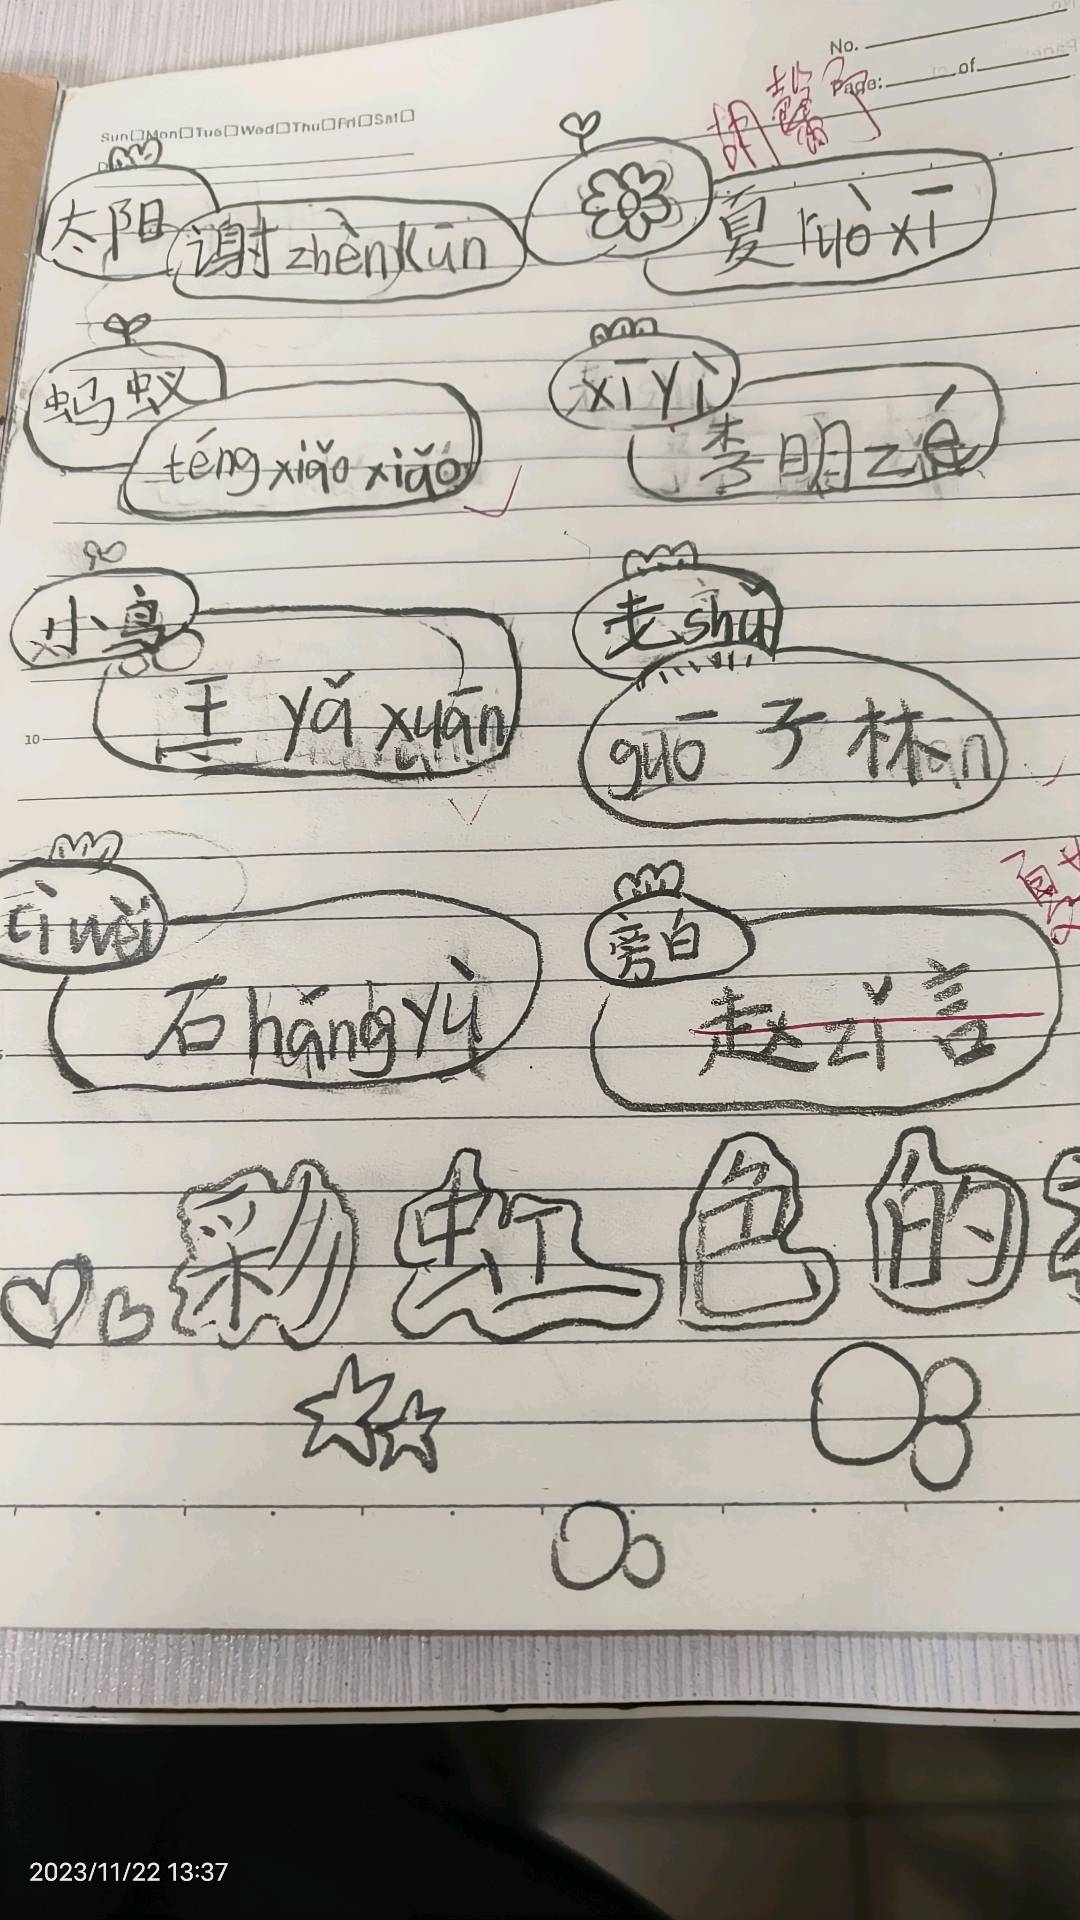 No.
Page: of
Sun Mon Tue Wed Thu Fri Sat
胡馨
太阳 谢zhènkūn
夏ruò xī
蚂蚁
téng xiǎo xiǎo
xī yì
李明
小鸟
王 yǎ xuān
老shǔ
guō 子林
10
cì wèi
石hǎng yù
旁白
赵zǐ言
彩虹色的
2023/11/22 13:37